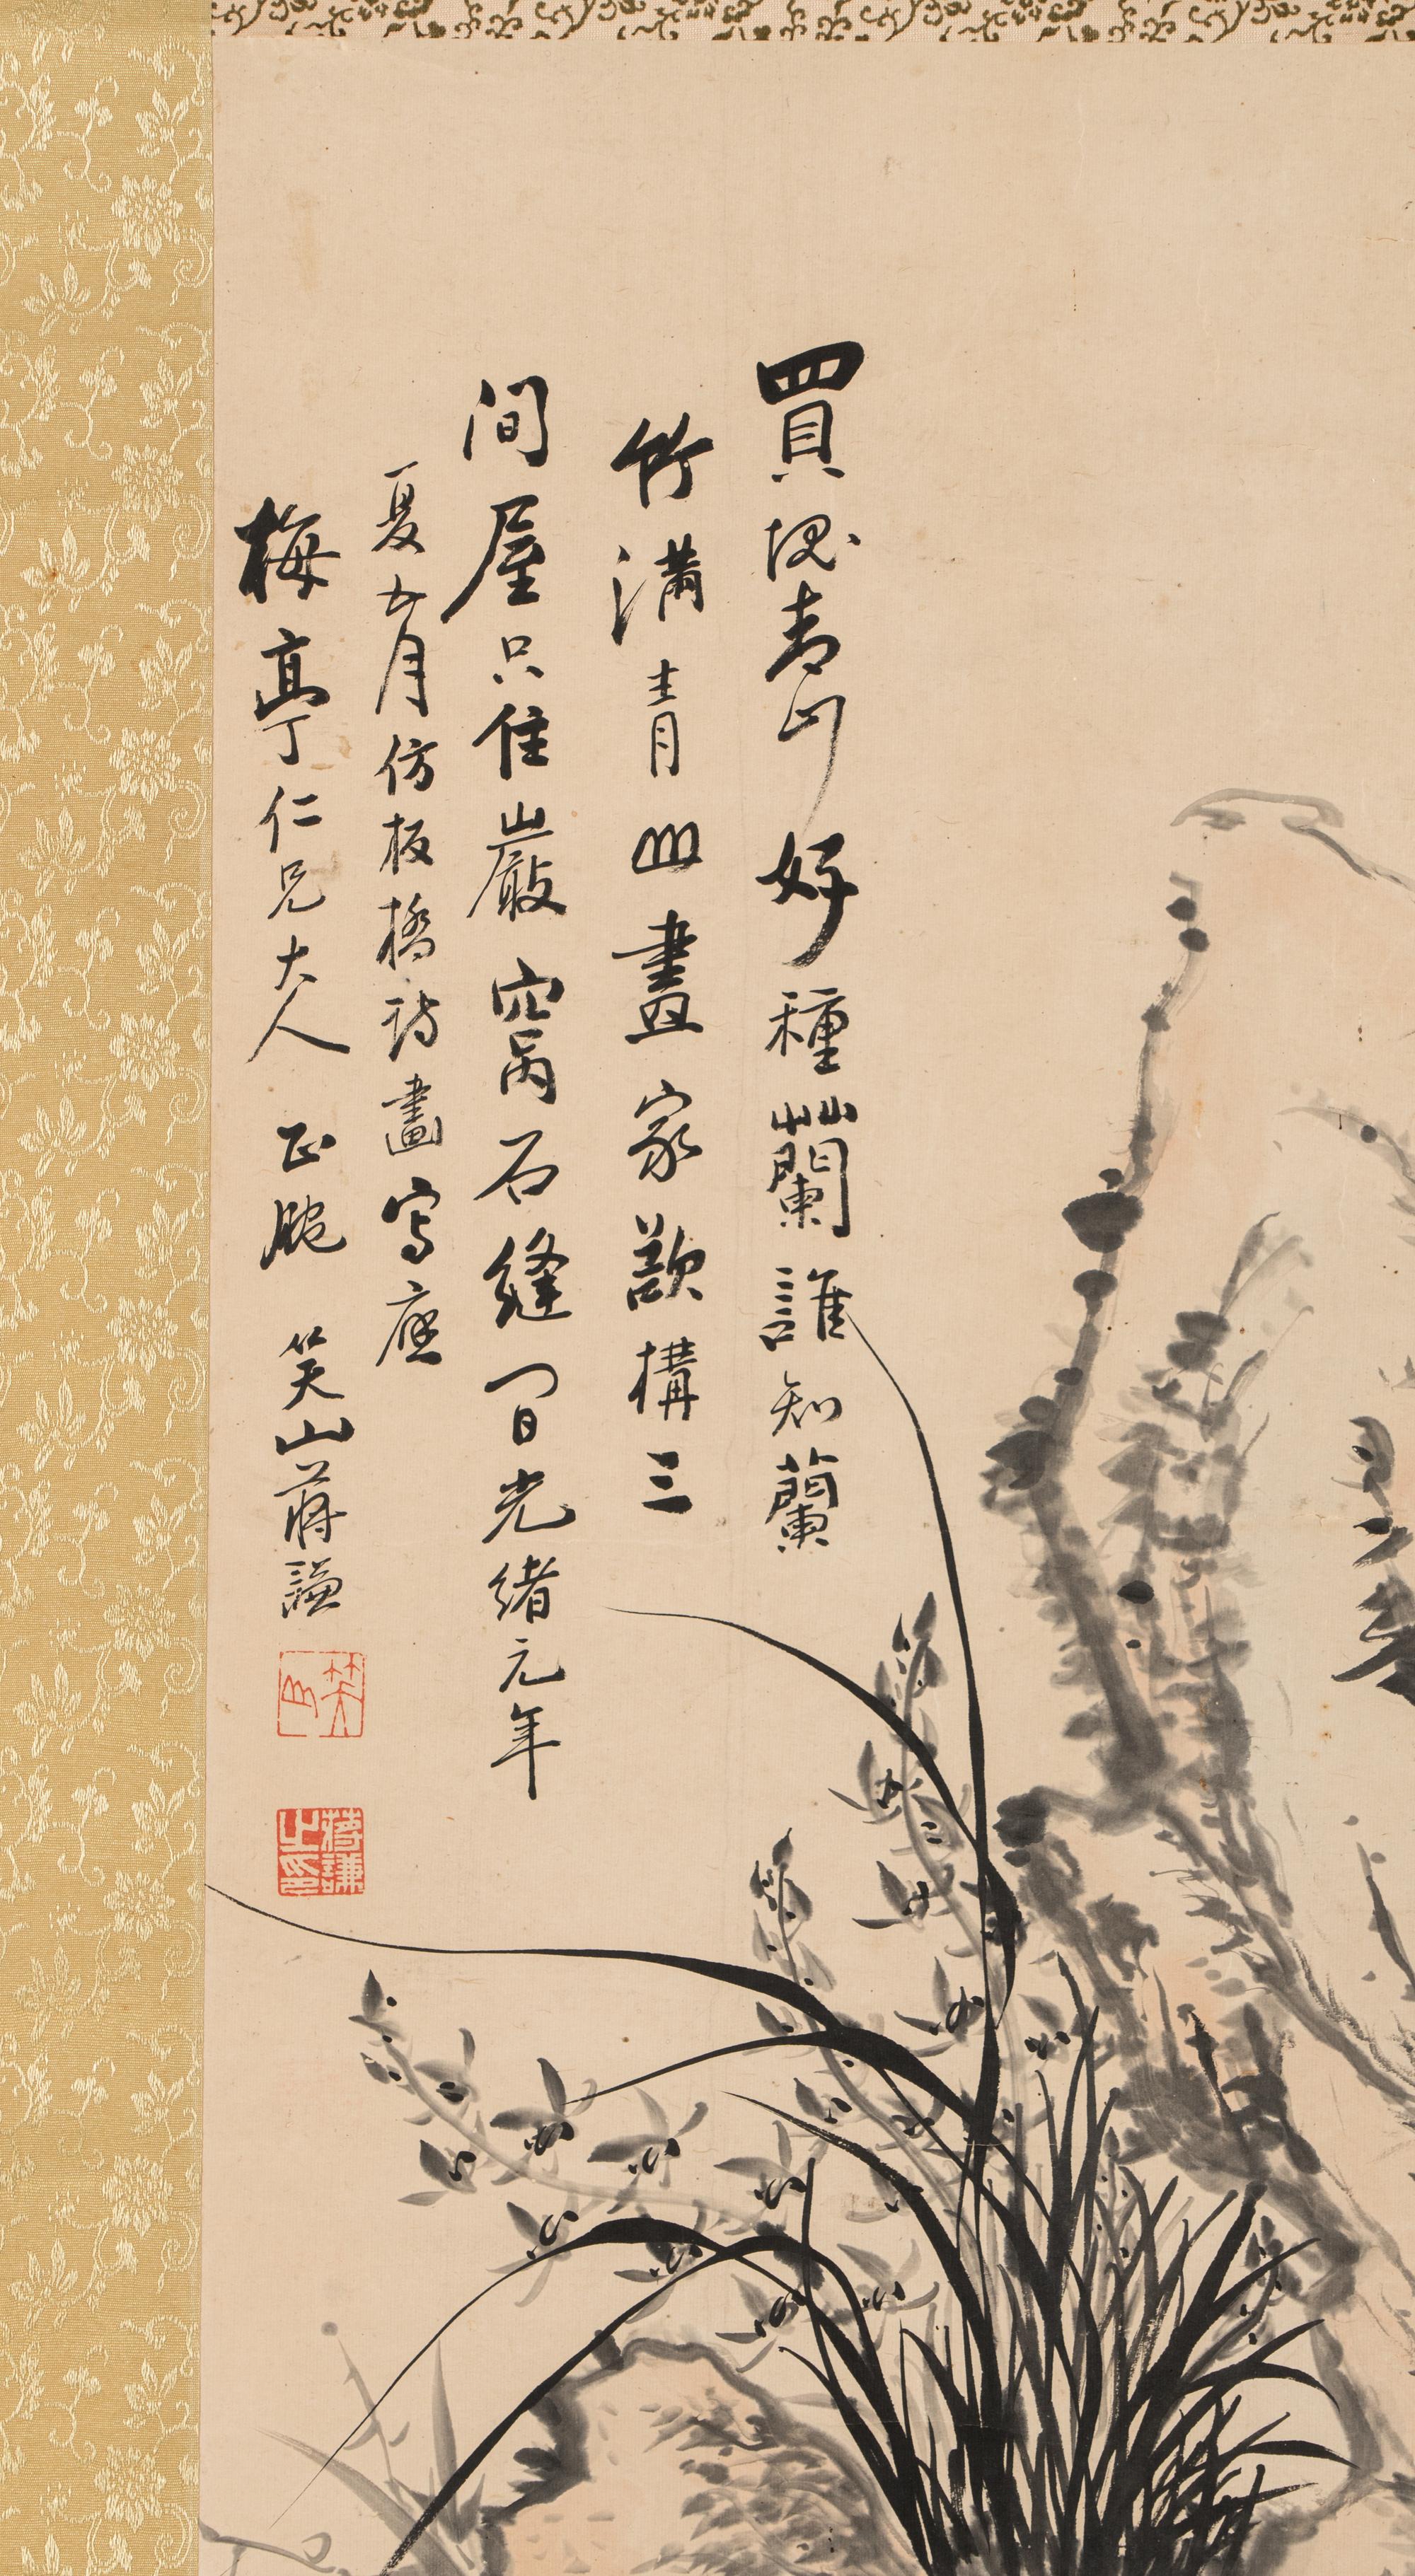 買塊青山好種蘭誰知蘭
竹滿青山畫家歖構三
间屋只住巖窩石縫間光緒元年
夏五月仿板橋詩畫寫應
梅亭仁兄大人正腕笑山蔣謙
笑山
蔣謙之印